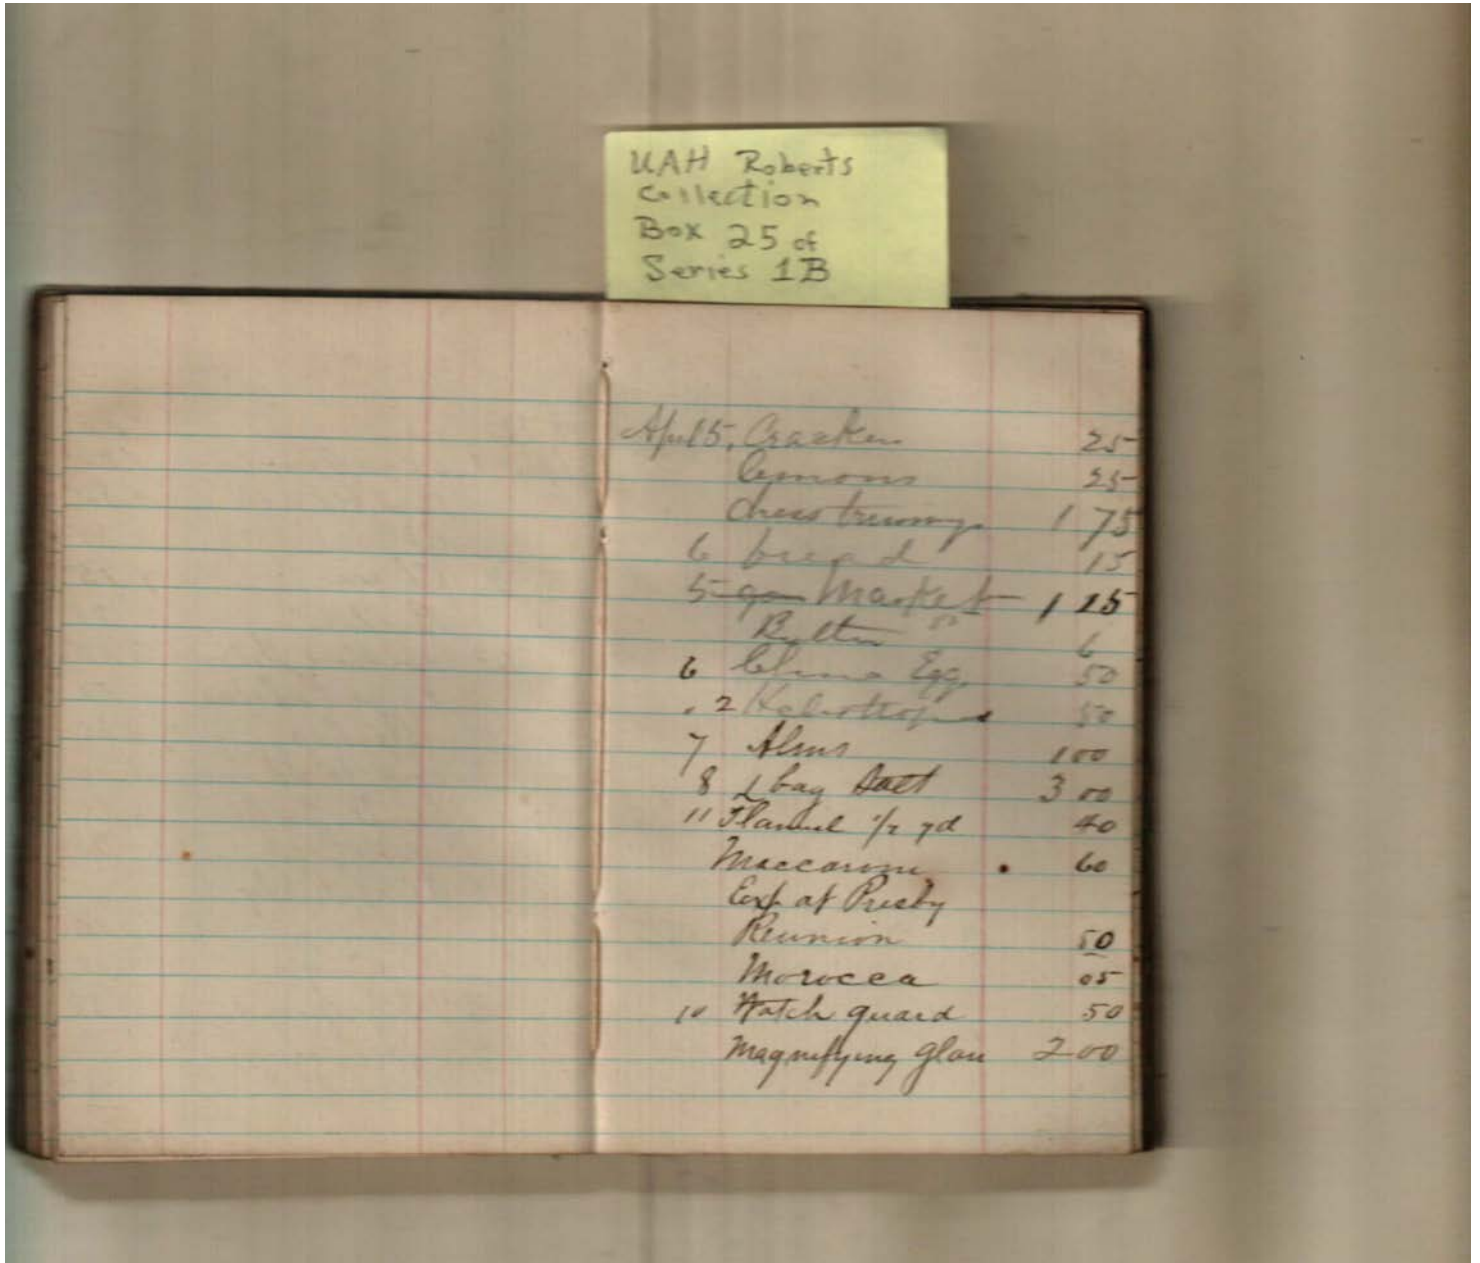 UAH Roberts
Collection
Box 25 of
Series 1B
Apr 5, Crackers 25
lemons 25
dress trimmgs 1 75
6 bread 15
5 Market 1 15
Butter 6
6 China Egg 50
2 50
7 Alms 1 00
8 1 bag Salt 3 00
11 Flannel 1/2 yd 40
Maccaroni 60
Exp at Presby
Reunion 50
Morocca 05
10 Watch guard 50
Magnifying glass 2 00